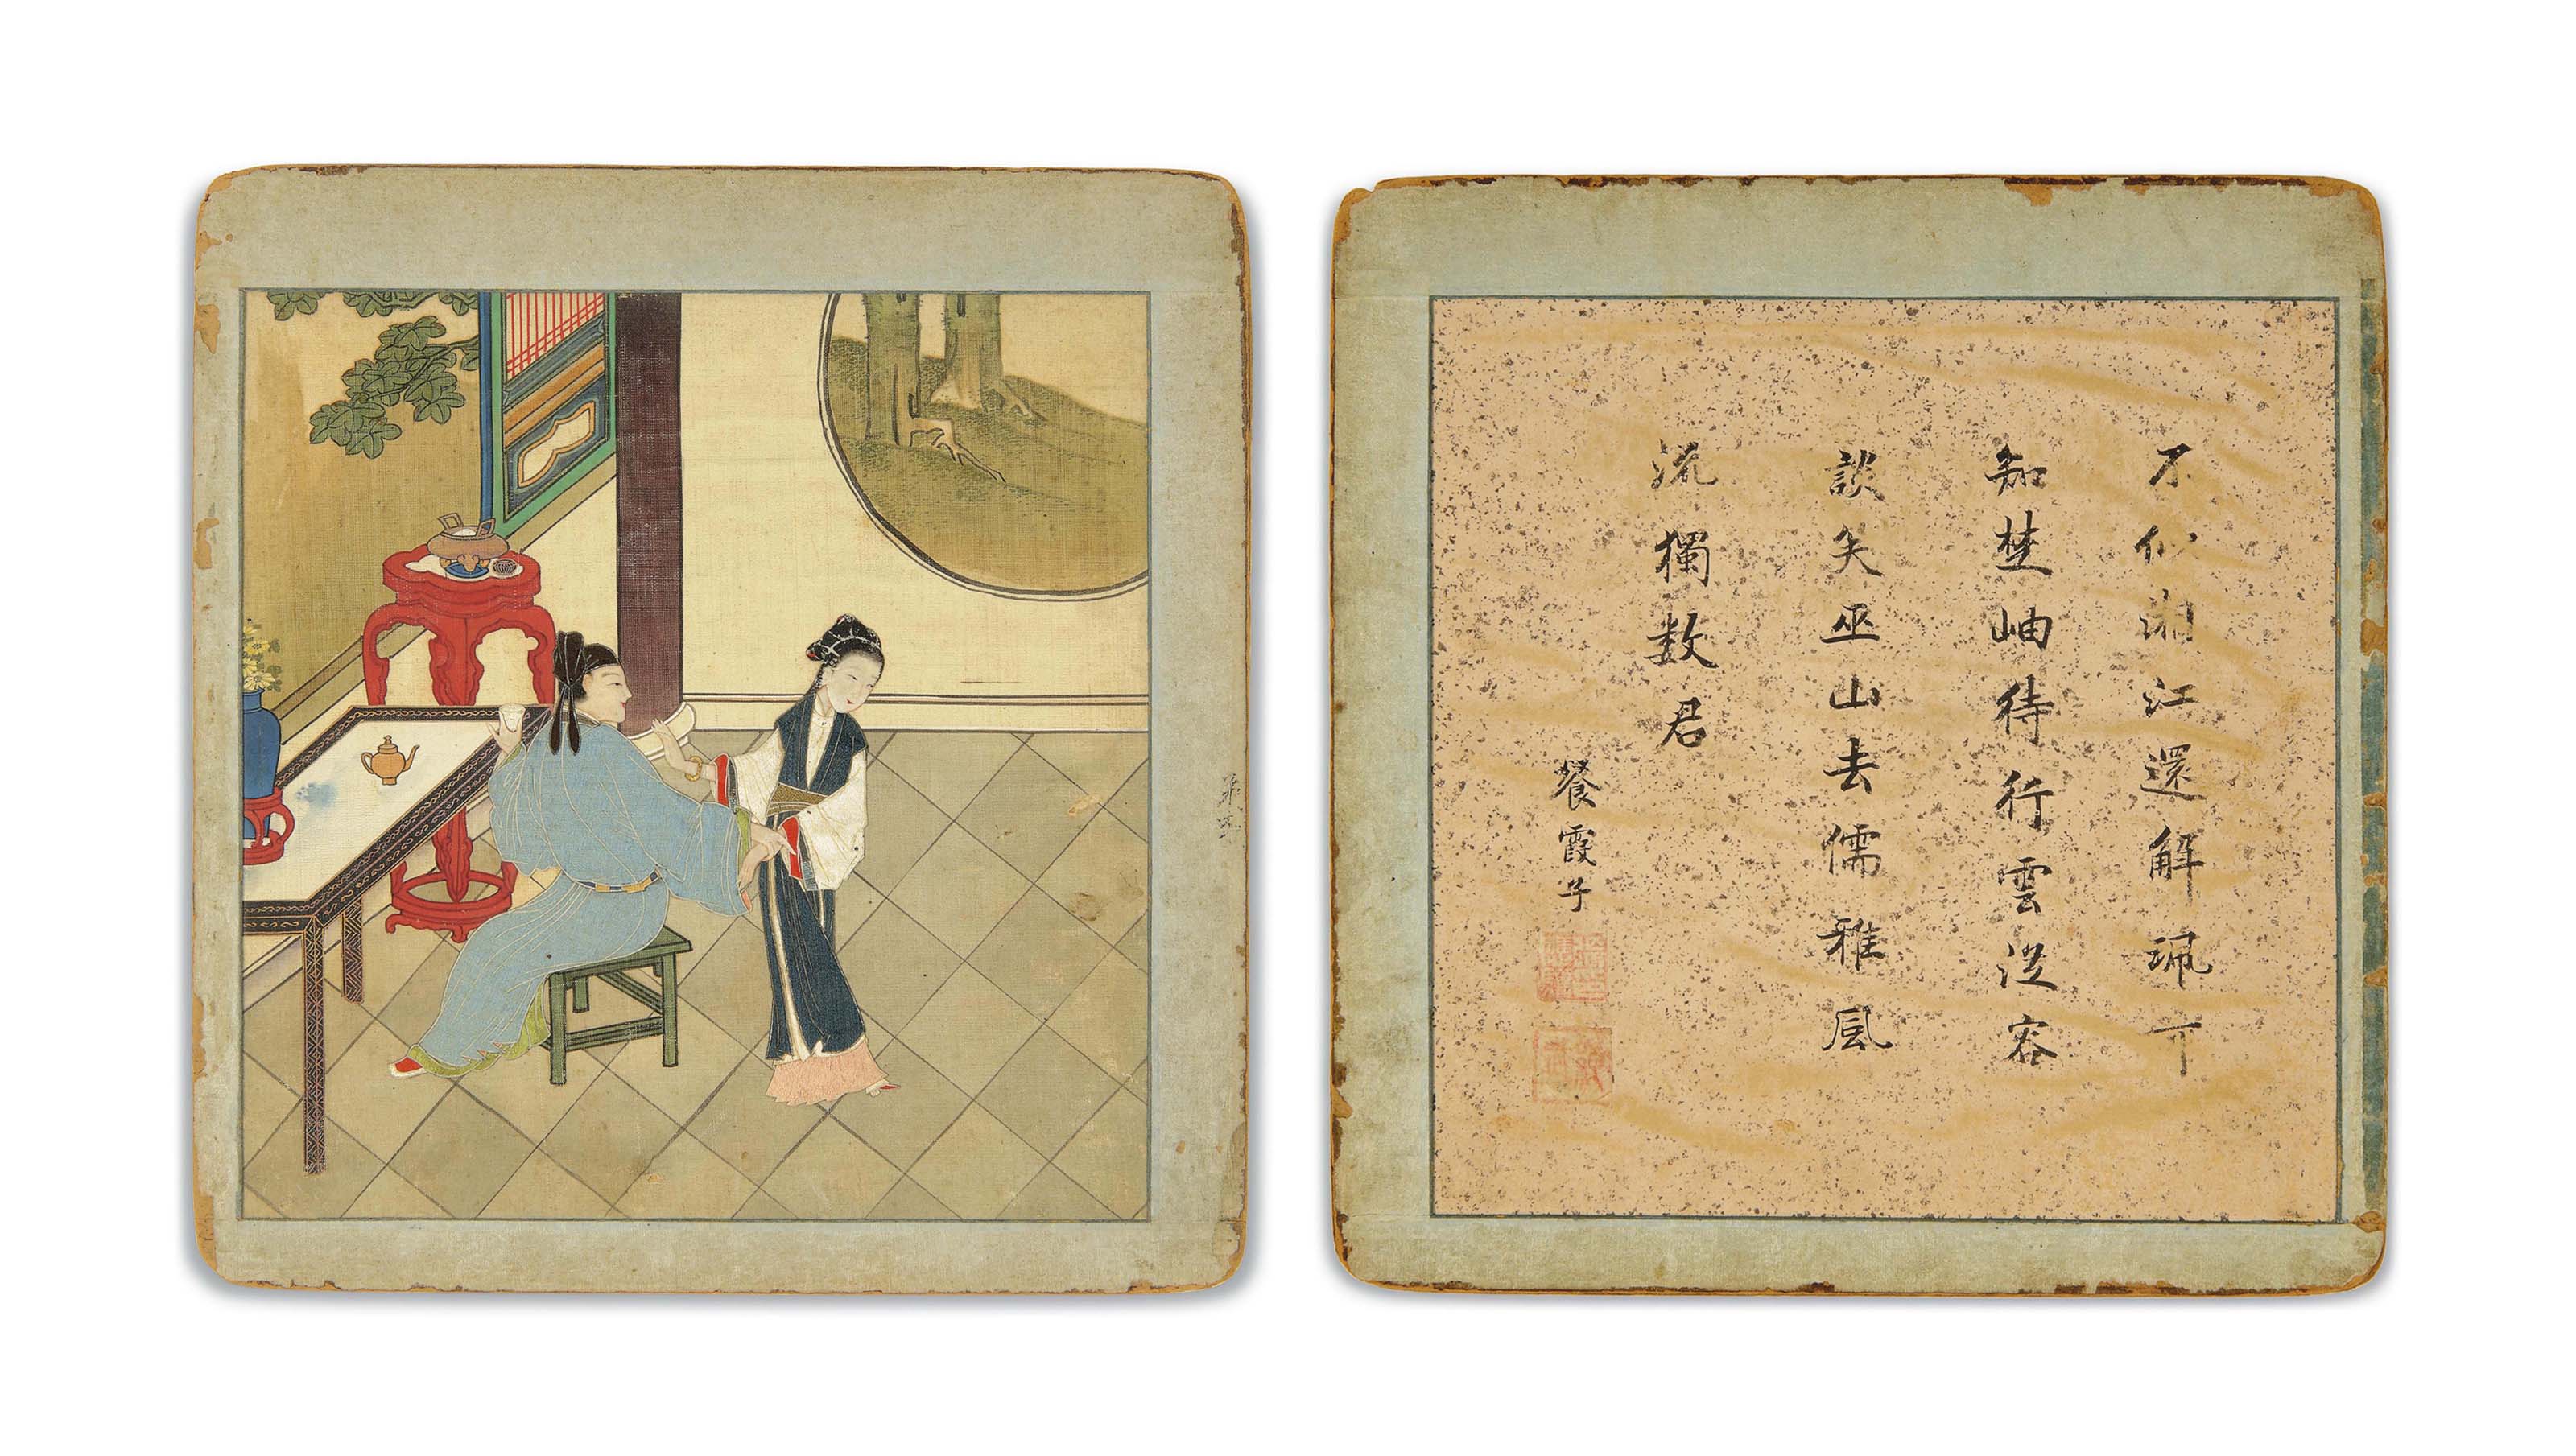 第五
不似湘江還解珮
知楚岫待行雲從容
談笑巫山去儒雅風
流獨数君
餐霞子